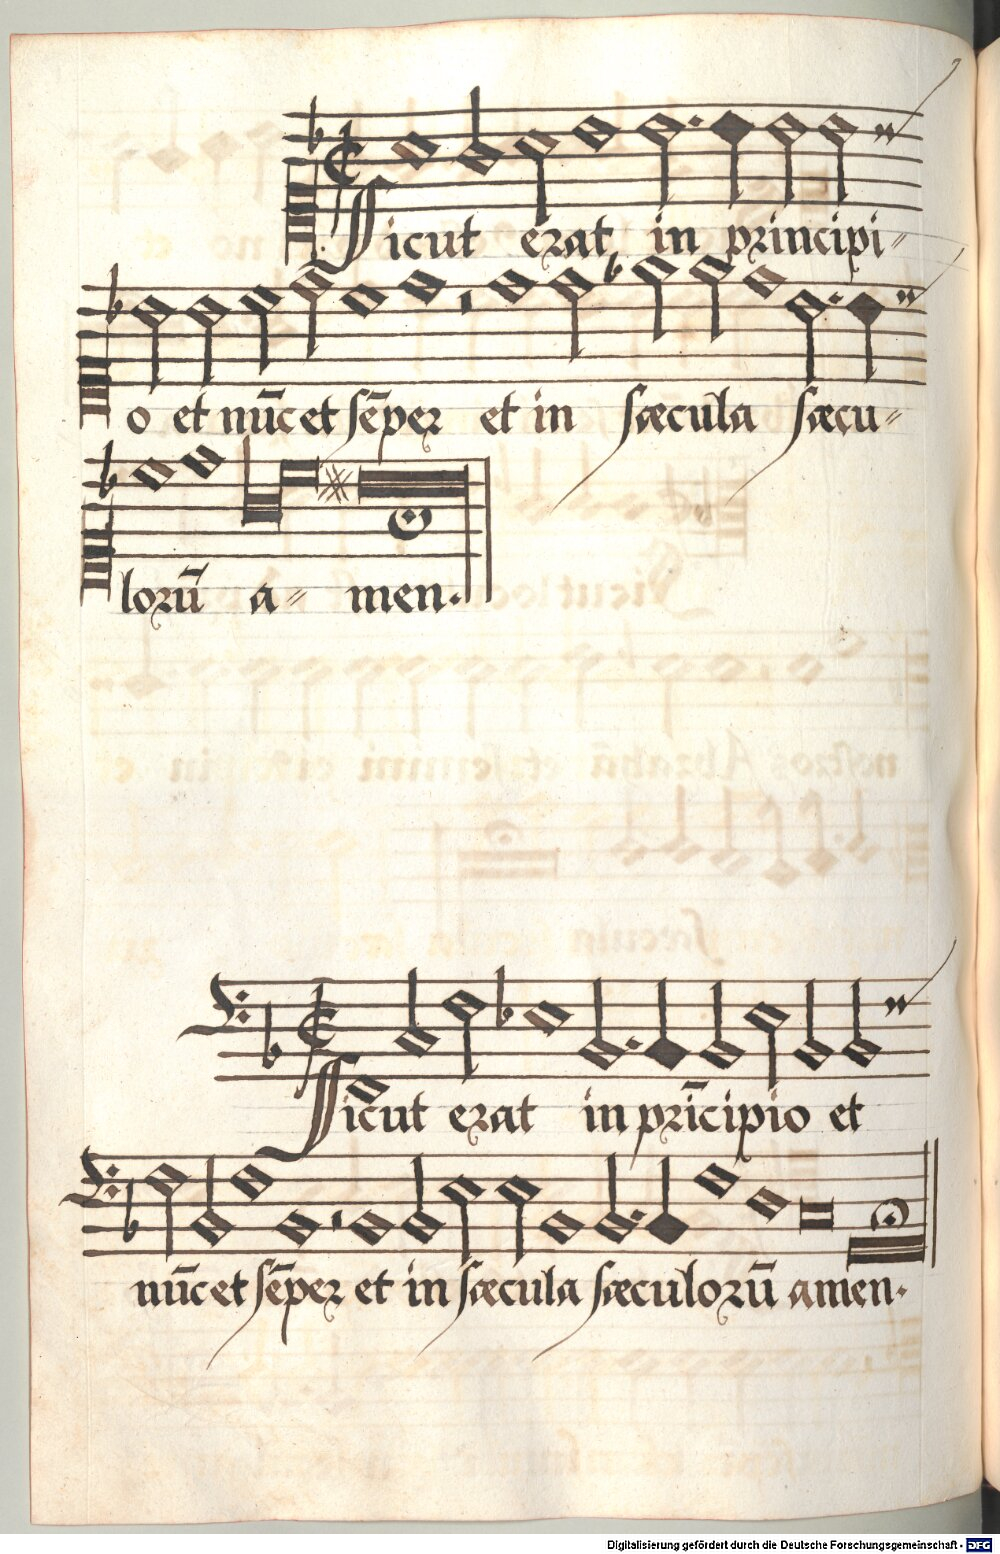 Sicut erat in principi=
o et nūc et sēper et in sæcula sæcu=
lorū a= men.
Sicut erat in prīcipio et
nūc et sēper et in sæcula sæculorū amen.
Digitalisierung gefördert durch die Deutsche Forschungsgemeinschaft - DFG